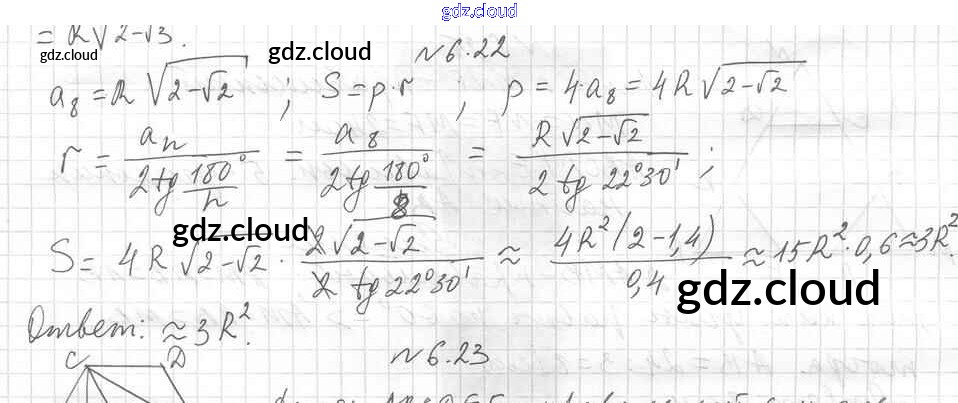 gdz.cloud
= R√2-√3.
gdz.cloud
gdz.cloud
№6.22
a₈ = R√2-√2 ; S = p·r ; p = 4·a₈ = 4R√2-√2
r = aₙ / 2tg 180°/n = a₈ / 2tg 180°/8 = R√2-√2 / 2 tg 22°30' ;
gdz.cloud
S = 4R√2-√2 · 2√2-√2 / 2 tg 22°30' ≈ 4R²(2-1,4) / 0,4 ≈ 15R²·0,6 ≈ 3R².
gdz.cloud
Ответ: ≈ 3R².
№6.23
C D